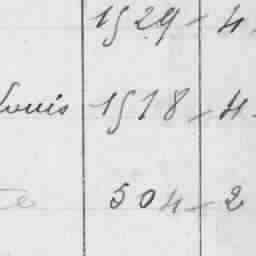 1529 - 4
Louis 1518 - 4 -
504 - 2